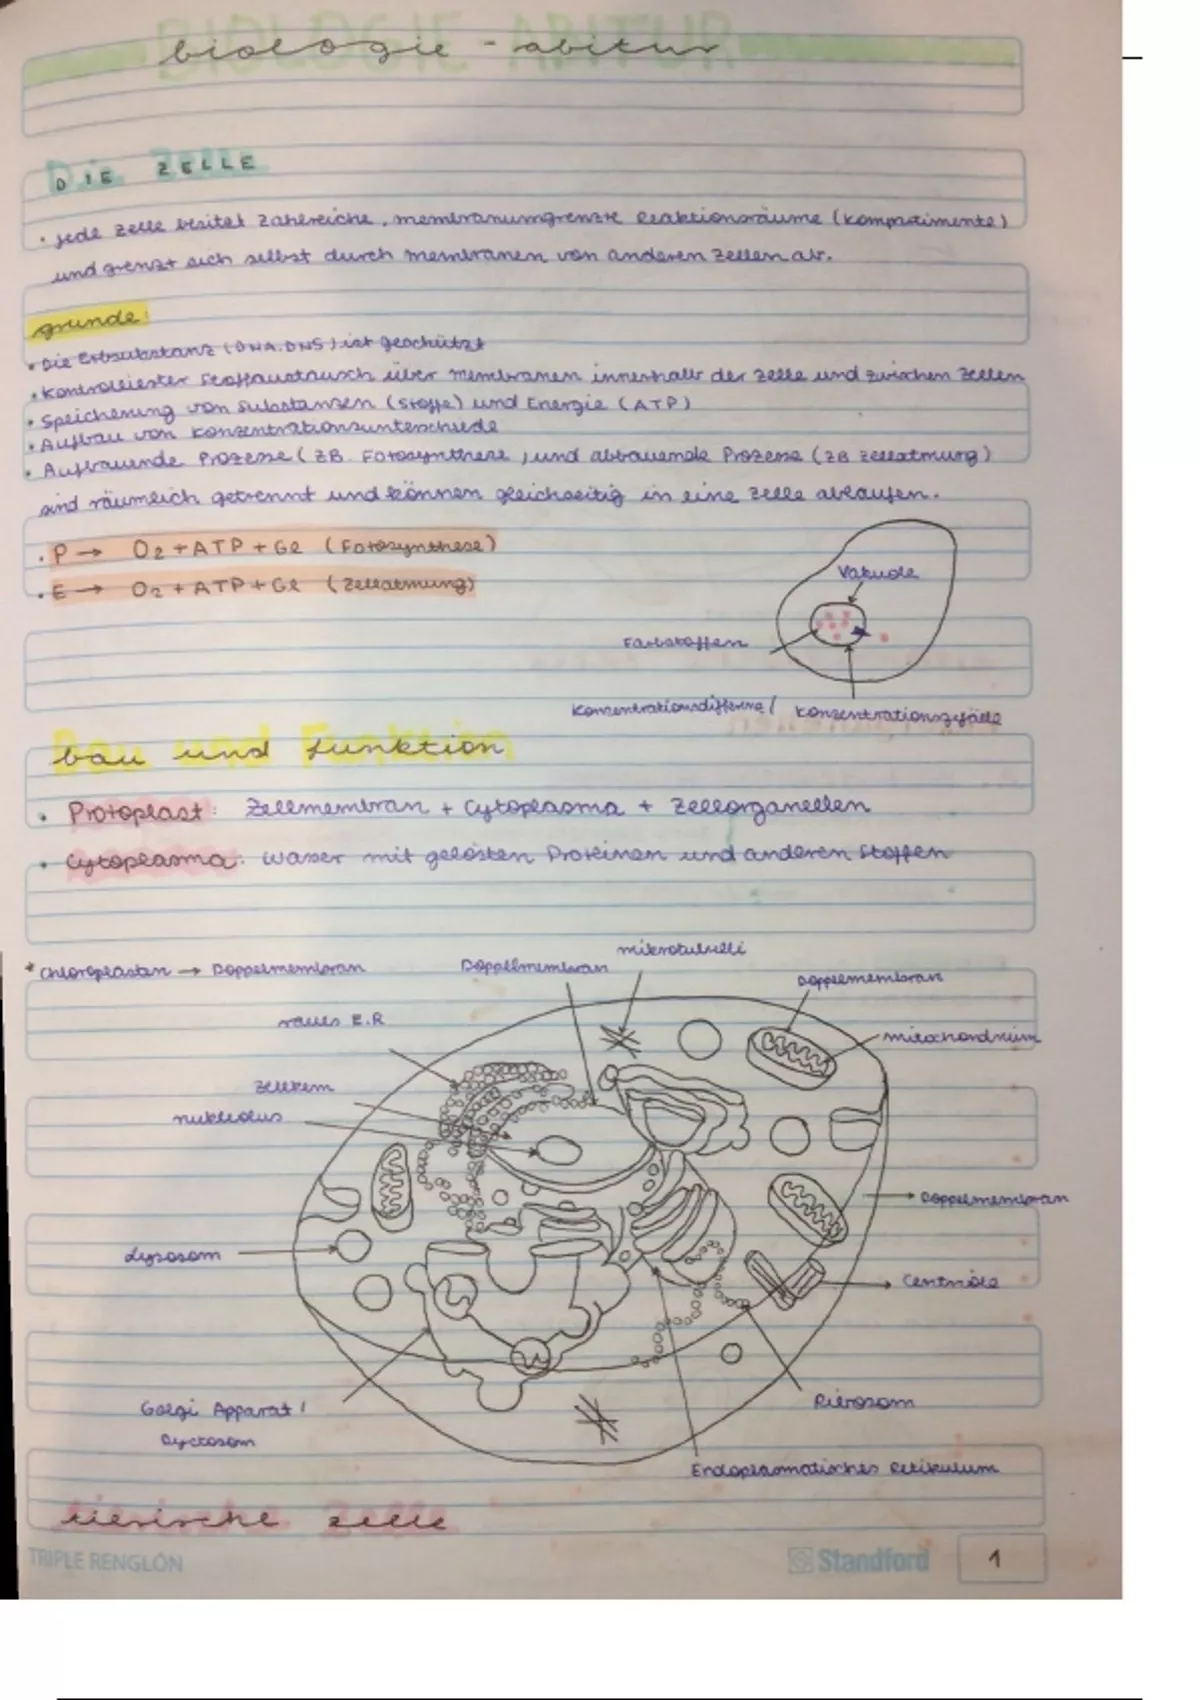 biologie - abitur
DIE ZELLE
• jede Zelle besitzt zahlreiche, membranumgrenzte Reaktionsräume (Kompartimente)
und grenzt sich selbst durch Membranen von anderen Zellen ab.
gründe:
• Die Erbsubstanz (DNA.DNS) ist geschützt
• Kontrollierter Stoffaustausch über Membranen innerhalb der Zelle und zwischen Zellen
• Speicherung von Substanzen (Stoffe) und Energie (ATP)
• Aufbau von Konzentrationsunterschiede
• Aufbauende Prozesse (ZB. Fotosynthese) und abbauende Prozesse (ZB Zellatmung)
sind räumlich getrennt und können gleichzeitig in eine Zelle ablaufen.
• P → O2 + ATP + Gl (Fotosynthese)
• E → O2 + ATP + Gl (Zellatmung)
Vakuole
Farbstoffen
Konzentrationsdifferenz / Konzentrationsgefälle
bau und funktion
• Protoplast: Zellmembran + Cytoplasma + Zellorganellen
• Cytoplasma: Wasser mit gelösten Proteinen und anderen Stoffen
mikrotubulli
* Chloroplasten → Doppelmembran
Doppelmembran
Doppelmembran
raues E.R
mitochondrium
Zellkern
nukleolus
Doppelmembran
Lysosom
Centriole
Ribosom
Golgi Apparat /
Dyctosom
Endoplasmatisches Retikulum
tierische zelle
TRIPLE RENGLÓN
Standford
1